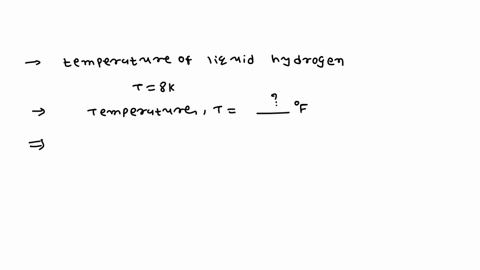 → temperature of liquid hydrogen
T = 8K
→ Temperature, T = ___?___ °F
⇒